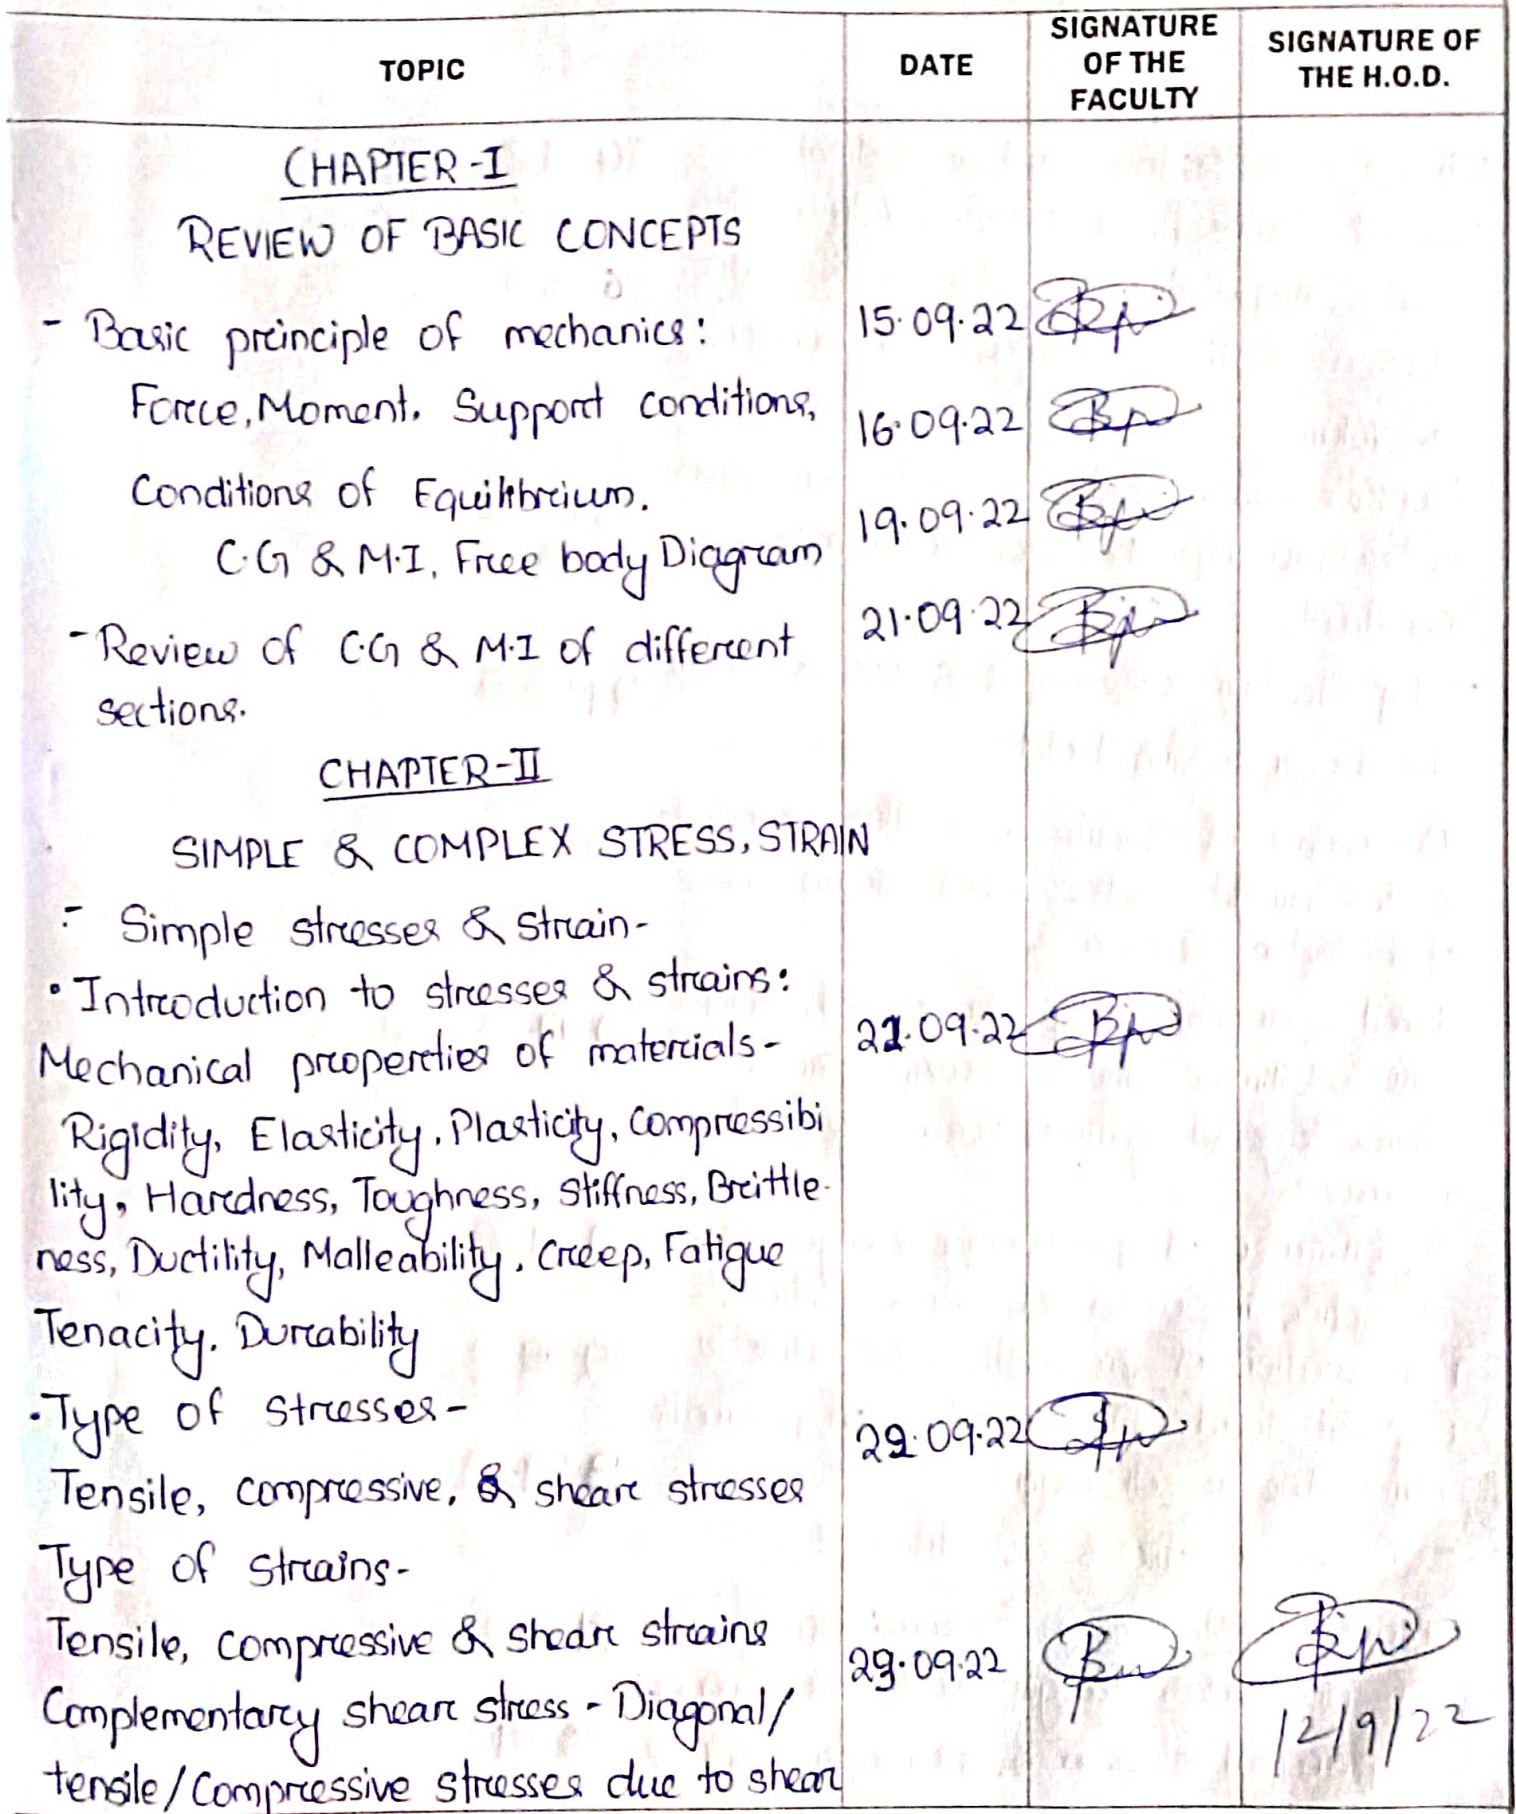 TOPIC DATE SIGNATURE OF THE FACULTY SIGNATURE OF THE H.O.D.
CHAPTER-I
REVIEW OF BASIC CONCEPTS
- Basic principle of mechanics: 15.09.22
Force, Moment, Support conditions, 16.09.22
Conditions of Equilibrium. 19.09.22
C.G & M.I, Free body Diagram
- Review of C.G & M.I of different 21.09.22
sections.
CHAPTER-II
SIMPLE & COMPLEX STRESS, STRAIN
- Simple stresses & strain-
• Introduction to stresses & strains:
Mechanical properties of materials- 21.09.22
Rigidity, Elasticity, Plasticity, Compressibi
lity, Hardness, Toughness, Stiffness, Brittle-
ness, Ductility, Malleability, Creep, Fatigue
Tenacity, Durability
• Type of stresses- 22.09.22
Tensile, compressive, & shear stresses
Type of strains-
Tensile, compressive & shear strains 23.09.22
Complementary shear stress - Diagonal/ 12/9/22
tensile/Compressive stresses due to shear